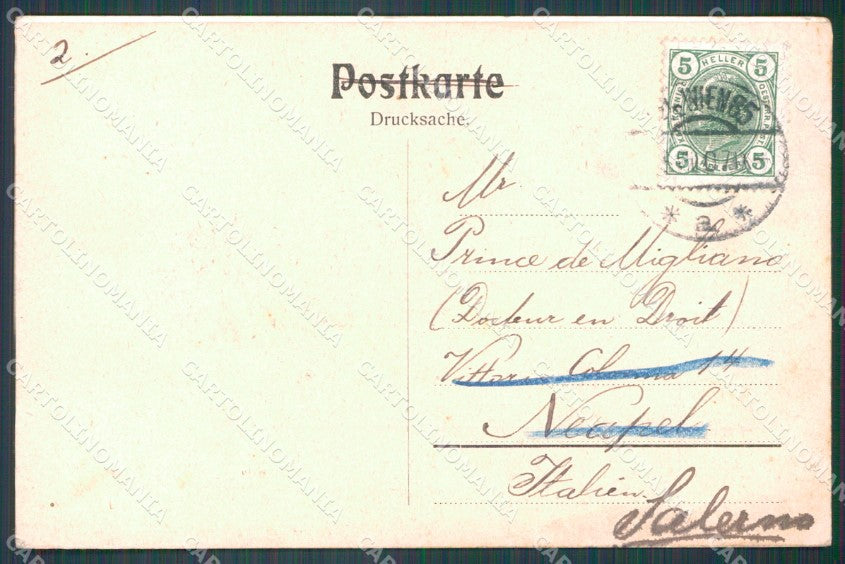 2.
Postkarte
Drucksache.
5 HELLER 5
5 5
WIEN 65
* a *
Mr.
Prince de Migliano
(Docteur en Droit)
Vittoria Colonna 14
Neapel
Italien
Salerno
CARTOLINOMANIA